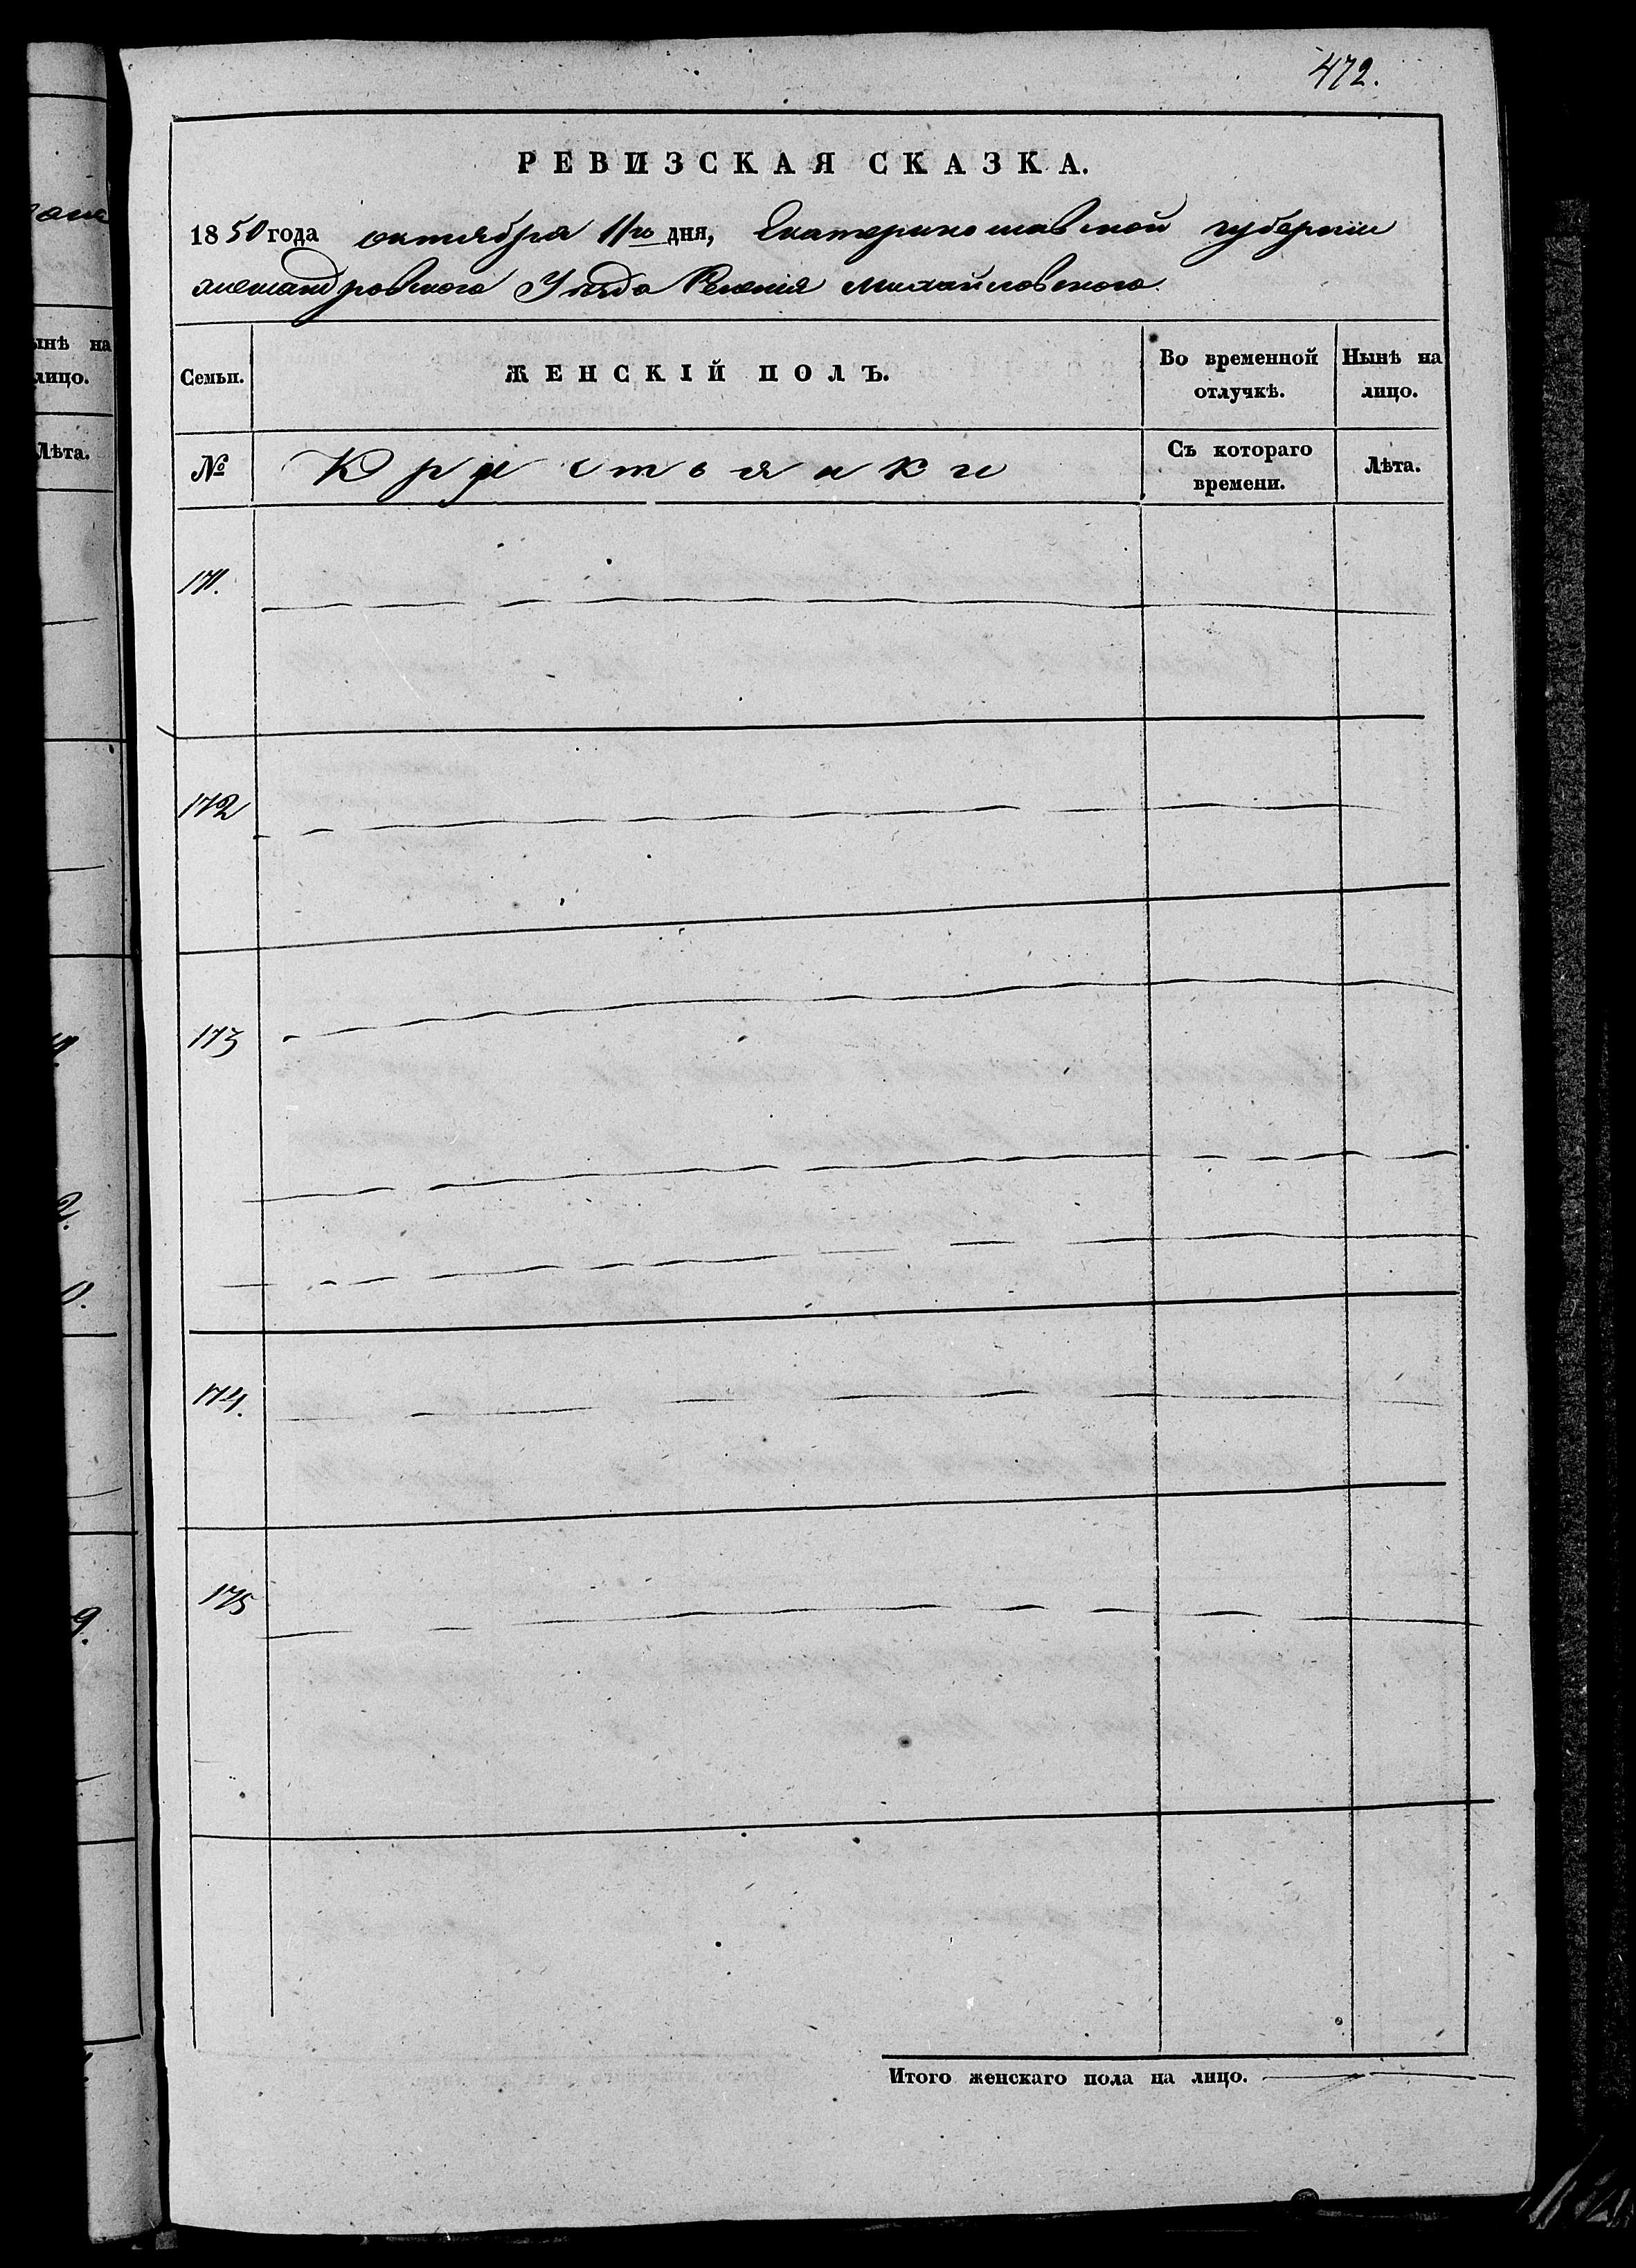 472.
РЕВИЗСКАЯ СКАЗКА.
1850 года октября 11го дня, Екатеринославской губернии
александровского Уезда Селения Михайловского
Семьи.
ЖЕНСКІЙ ПОЛЪ.
Во временной отлучкѣ.
Нынѣ на лицо.
№
Крестьянки
Съ котораго времени.
Лѣта.
171.
172
173
174.
175
Итого женскаго пола на лицо.
на
лицо.
Лѣта.
2.
0.
9.